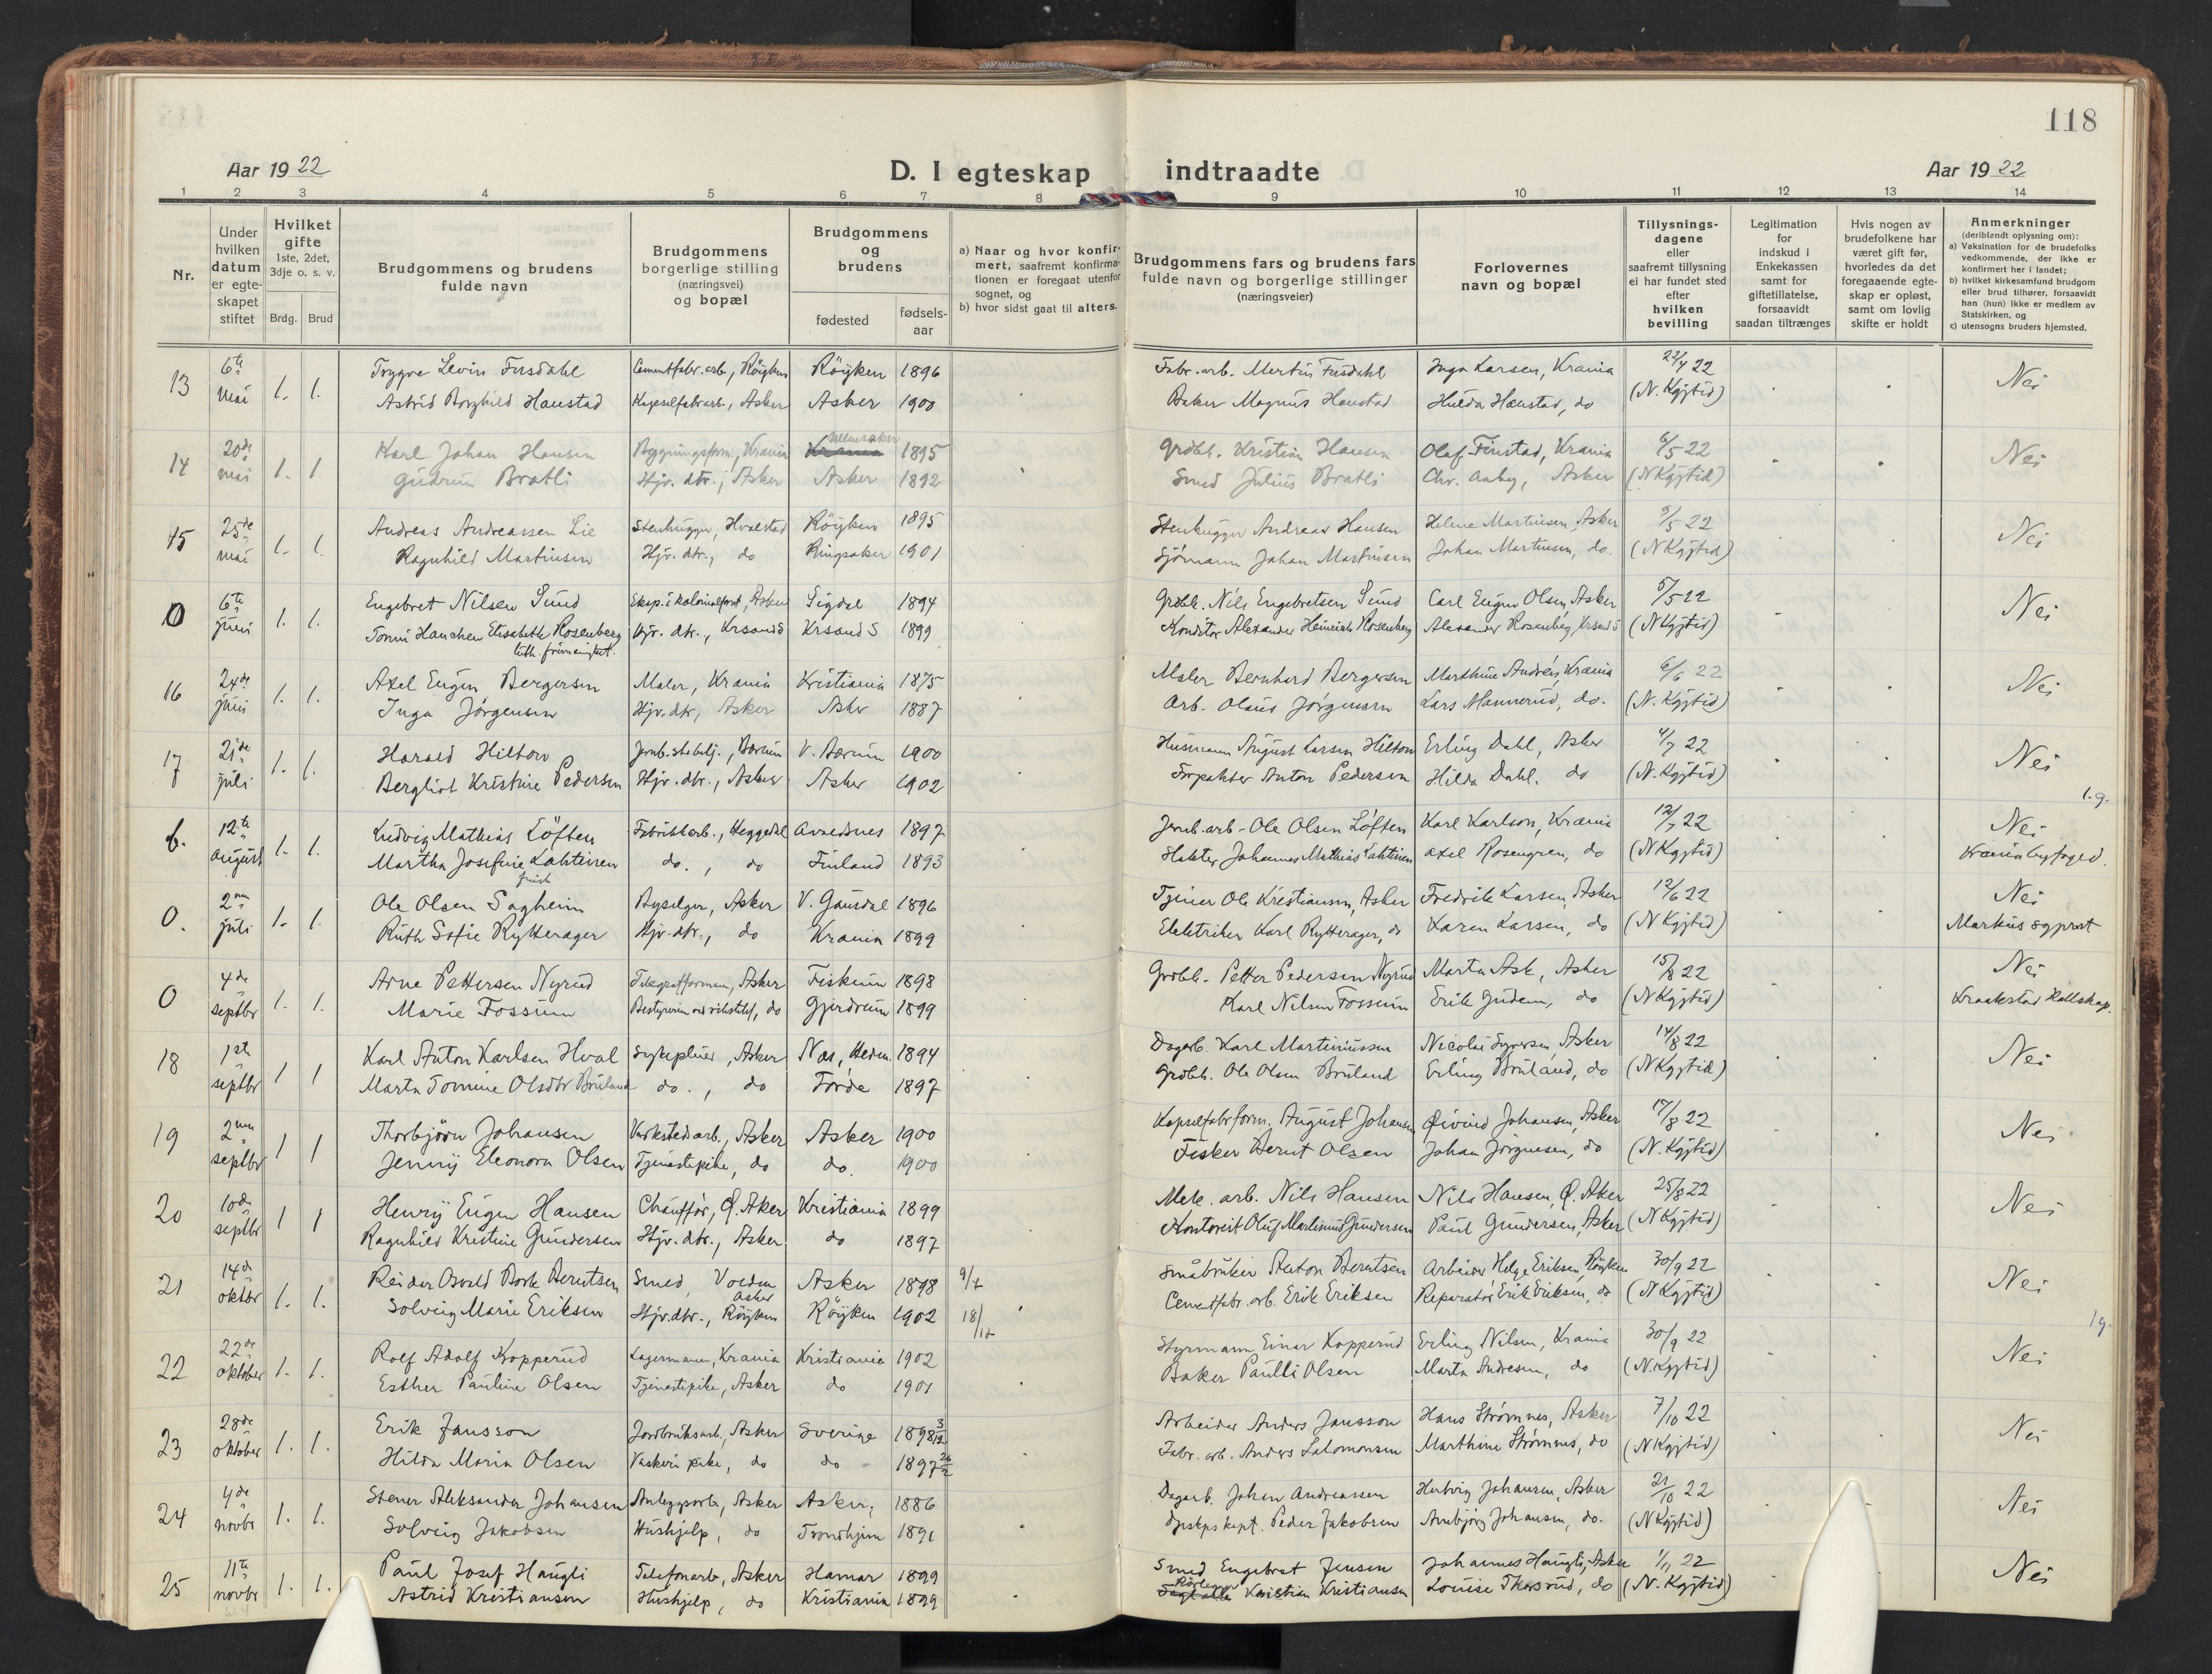 118
Aar 1922
D. I egteskap indtraadte
Aar 1922
1 2 3 4 5 6 7 8 9 10 11 12 13 14
Nr.
Under hvilken datum er egteskapet stiftet
Hvilket gifte 1ste, 2det, 3dje o. s. v.
Brdg. Brud
Brudgommens og brudens fulde navn
Brudgommens borgerlige stilling (næringsvei) og bopæl
Brudgommens og brudens
fødested
fødselsaar
a) Naar og hvor konfirmert, saafremt konfirmationen er foregaat utenfor sognet, og
b) hvor sidst gaat til alters.
Brudgommens fars og brudens fars fulde navn og borgerlige stillinger (næringsveier)
Forlovernes navn og bopæl
Tillysningsdagene eller saafremt tillysning ei har fundet sted efter hvilken bevilling
Legitimation for indskud i Enkekassen samt for giftetillatelse, forsaavidt saadan tiltrænges
Hvis nogen av brudefolkene har været gift før, hvorledes da det foregaaende egteskap er opløst, samt om lovlig skifte er holdt
Anmerkninger (deriblandt oplysning om):
a) Vaksination for de brudefolks vedkommende, der ikke er konfirmert her i landet;
b) hvilket kirkesamfund brudgom eller brud tilhører, forsaavidt han (hun) ikke er medlem av Statskirken, og
c) utensogns bruders hjemsted.
13 6te mai 1. 1. Trygve Levin Fusdahl Cementfabr.arb., Röyken Röyken 1896 Fabr.arb. Martin Fusdahl Inga Larsen, Krania 22/4 22 Nei
Astrid Borghild Haustad Kapselfabrarb., Asker Asker 1900 Baker Magnus Haustad Hulda Haustad, do (N. Kgjtid)
14 20de mai 1. 1 Karl Johan Hansen Bygningsform., Krania Ullensaker 1895 Grdbb. Kristian Hansen Olaf Finstad, Krania 6/5 22 Nei
Gudrun Bratli Hjv. dtr., Asker Asker 1892 Smed Julius Bratli Chr. Aaby, Asker (N Kgjtid)
15 25de mai 1. 1. Andreas Andreassen Lie Stenhugger, Hvalstad Röyken 1895 Stenhugger Andreas Hansen Helene Martinsen, Asker 9/5 22 Nei
Ragnhild Martinsen Hjv. dtr., do Ringsaker 1901 Sjömann Johan Martinsen Johan Martinsen, do. (N Kgjtid)
0 6te juni 1. 1. Engebret Nilsen Sund Eksp. i kolonialforr., Asker Sigdal 1894 Grdbb. Nils Engebretsen Sund Carl Eugen Olsen, Asker 5/5 22 Nei
Tonni Hanchen Elisabeth Rosenberg Hjv. dtr., Krsand S Krsand S 1899 Konditor Alexander Heinrich Rosenberg Alexander Rosenberg, Krsand S (N Kgjtid)
luth. frimenighet.
16 24de juni 1. 1. Axel Eugen Bergersen Maler, Krania Kristiania 1875 Maler Bernhard Bergersen Marthine Andrén, Krania 6/6 22 Nei
Inga Jörgensen Hjv. dtr, Asker Asker 1887 Arb. Olaus Jörgensen Lars Mannerud, do. (N. Kgjtid)
17 21de juli 1. 1. Harald Hilton Jernb.stabelj., Bærum V. Bærum 1900 Husmann August Larsen Hilton Erling Dahl, Asker 4/7 22 Nei
Bergliot Kristine Pedersen Hjv. dtr., Asker Asker 1902 Forpakter Anton Pedersen Hilda Dahl. do (N. Kgjtid)
b. 12te august 1. 1. Ludvig Mathias Löften Fabrikkarb., Heggedal Avaldsnes 1897 Jernb.arb. Ole Olsen Löften Karl Karlson, Krania 12/7 22 Nei 1.g.
Martha Josefine Lahtinen do., do Finland 1893 Johannes Mathias Lahtinen Axel Rosengren, do (N Kgjtid) Krania byfoged.
finsk
0. 2nen juli 1. 1. Ole Olsen Sagheim Byselger, Asker V. Gausdal 1896 Tjener Ole Kristiansen, Asker Fredrik Larsen, Asker 12/6 22 Nei
Ruth Sofie Rytterager Hjv. dtr., do Krania 1899 Elektriker Karl Rytterager, do Karen Larsen, do (N Kgjtid) Markus sgprst
0 4de septbr 1. 1. Arne Pettersen Nyrud Telegrafforman, Asker Fiskum 1898 Grdbb. Petter Pedersen Nyrud Marta Ask, Asker 15/8 22 Nei
Marie Fossum Gjerdrum 1899 Karl Nilsen Fossum Erik Gudem, do (N Kgjtid) Kraakstad Kallskap.
18 1ste septbr 1 1 Karl Anton Karlsen Hval Sykepleier, Asker Nes, Hedm. 1894 Dagarb. Karl Martiniussen Nicolai Syversen, Asker 14/8 22 Nei
Marta Tomine Olsdtr Bruland do., do Förde 1897 Grdbb. Ole Olsen Bruland Erling Bruland, do (N Kgjtid)
19 2nen septbr 1 1 Thorbjörn Johansen Verkstedsarb., Asker Asker 1900 Kapselfabrform. August Johansen Øivind Johansen, Asker 17/8 22 Nei
Jenny Eleonora Olsen Tjenestepike, do do. 1900 Fisker Bernt Olsen Johan Jörgensen, do (N. Kgjtid)
20 10de septbr 1 1 Henry Eugen Hansen Chauffør, Ø. Aker Kristiania 1899 Mek. arb. Nils Hansen Nils Hansen, Ø. Aker 25/8 22 Nei
Ragnhild Kristine Gundersen Hjv. dtr., Asker do 1897 Kontorist Oluf Martinius Gundersen Paul Gundersen, Asker (N Kgjtid)
21 14de oktbr 1. 1. Reidar Osvald Bork Berntsen Smed, Vollen Asker Asker 1898 9/4 Småbruker Anton Berntsen Arbeider Helge Eriksen, Röyken 30/9 22 Nei
Solveig Marie Eriksen Hjv.dtr., Röyken Röyken 1902 18/12 Cementfabr.arb. Erik Eriksen Reparatör Erik Eriksen, do (N Kgjtid) 1g.
22 22de oktober 1. 1. Rolf Adolf Kopperud Lagermann, Krania Kristiania 1902 Styrmann Einar Kopperud Erling Nilsen, Krania 30/9 22 Nei
Esther Pauline Olsen Tjenestepike, Asker do 1901 Baker Paulli Olsen Marta Andresen, do (N. Kgjtid)
23 28de oktober 1. 1. Erik Jansson Jordbruksarb., Asker Sverige 1898 3/12 Arbeider Anders Jansson Hans Strömnes, Asker 7/10 22 Nei
Hilda Maria Olsen Vaskeri pike, do do 1897 26/2 Fabr. arb. Anders Salomonsen Marthine Strömnes, do (N Kgjtid)
24 4de novbr 1. 1. Stener Aleksander Johansen Anleggsarb., Asker Asker 1886 Dagarb. Johan Andreassen Hertvig Johansen, Asker 21/10 22 Nei
Solveig Jakobsen Hushjelp, do Trondhjem 1891 Dpskps kapt. Peder Jakobsen Arnbjörg Johansen, do. (N Kgjtid)
25 11te novbr 1. 1. Paul Josef Haugli Telefonarb., Asker Hamar 1899 Smed Engebret Jensen Johannes Haugli, Asker 1/11 22 Nei
Astrid Kristiansen Hushjelp, do Kristiania 1899 Rörlegger Kristian Kristiansen Louise Thorsrud, do (N. Kgjtid)